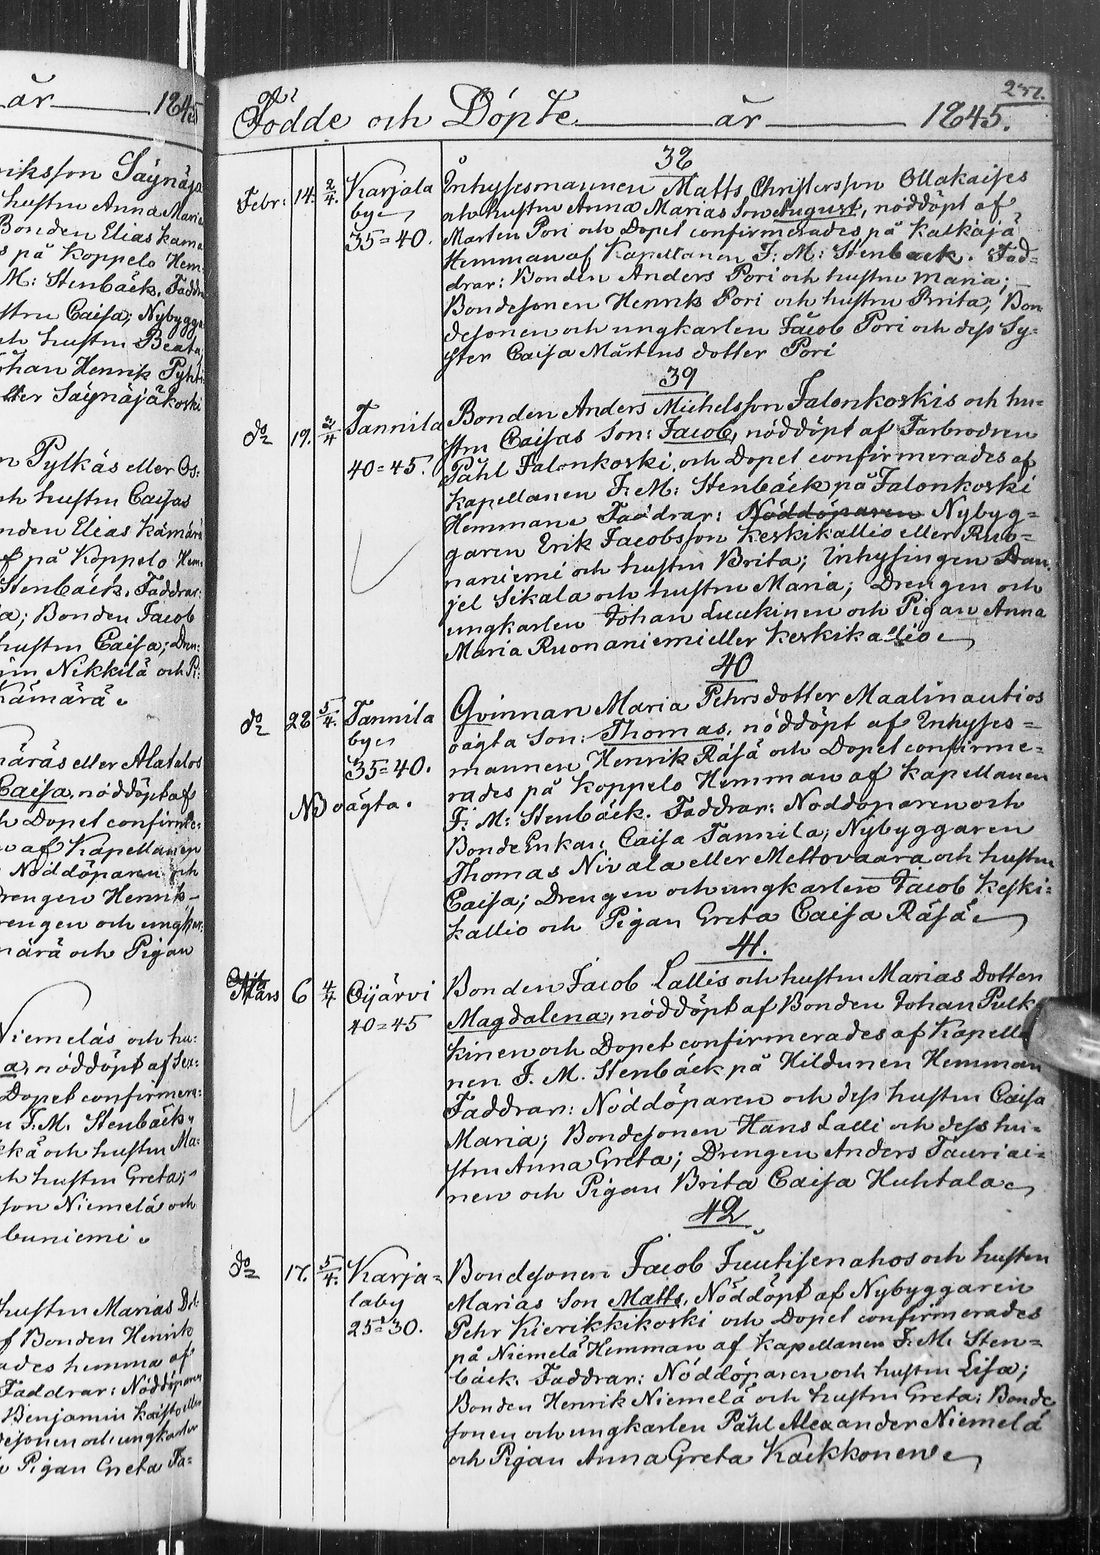 år 1845
riksson Säynäjä
hustru Anna Maria
Bonden Elias Kämä
s på Koppelo Hem
M: Stenbäck. Faddr
stru Caisa; Nybygga
ch hustru Beata,
ohan Henrik Pyhti
ller Säynäjäkoski
n Pylkäs eller Os:
och hustru Caisas
nden Elias Kämärä
f på Koppelo Hem
Stenbäck. Faddrar:
a; Bonden Jacob
hustru Caisa; Dren:
im Nikkilä och Pi:
Kämärä
märäs eller Alatalos
Caisa, nöddöpt af
h Dopet confirme:
n af Kapellanen
Nöddöparen och
Drengen Henrik
rengen och ungkar:
märä och Pigan
Niemeläs och hu:
a, nöddöpt af
Dopet confirmer:
n F. M. Stenbäck
kä och hustru Ma:
ch hustru Greta;
son Niemelä och
buniemi
hustru Marias Dot
f Bonden Henrik
ades hemma af
Faddrar: Nöddöparen
Benjamin
desonen och ungkarlen
Pigan Greta Ta=
271.
Födde och Döpte år 1845.
38
Febr: 14. 2/4. Karjala Inhysesmannen Matts Christersson Ollakaises
by och hustru Anna Marias Son August, nöddöpt af
35=40. Mårten Pori och Dopet confirmerades på Kälkäjä
Hemman af Kapellanen F: M: Stenbäck. Fad=
drar: Bonden Anders Pori och hustru Maria;
Bondesonen Henrik Pori och hustru Brita; Bon
desonen och ungkarlen Jacob Pori och dess Sy=
ster Caisa Mårtens dotter Pori
39
do 19. 2/4 Tannila Bonden Anders Michelsson Jalonkoskis och hu=
stru Caisas Son: Jacob, nöddöpt af Farbrodren
40=45. Påhl Jalonkoski, och Dopet confirmerades af
Kapellanen F. M: Stenbäck på Jalonkoski
Hemman. Faddrar: Nöddöparen Nybyg=
garen Erik Jacobsson Keskikallio eller Ruo=
naniemi och hustru Brita; Inhysingen Dan
jel Sikala och hustru Maria; Drengen och
ungkarlen Johan Luukinen och Pigan Anna
Maria Ruonaniemi eller Keskikallio
40
do 28 5/4. Tannila Qvinnan Maria Pehrsdotter Maalinautios
by oägta Son: Thomas, nöddöpt af Inhyses=
35=40. mannen Henrik Räsä och Dopet confirme=
rades på Koppelo Hemman af Kapellanen
NB oägta. F: M: Stenbäck. Faddrar: Nöddöparen och
BondeEnkan Caisa Tannila; Nybyggaren
Thomas Nivala eller Mettovaara och hustru
Caisa; Drengen och ungkarlen Jacob Keski=
kallio och Pigan Greta Caisa Räsä
41.
Mars 6 4/4 Oijärvi Bonden Jacob Lallis och hustru Marias Dotter
40=45 Magdalena, nöddöpt af Bonden Johan Pulk
kinen och Dopet confirmerades af Kapella
nen F. M. Stenbäck på Hildunen Hemman
Faddrar: Nöddöparen och dess hustru Caisa
Maria; Bondesonen Hans Lalli och dess hu=
stru Anna Greta; Drengen Anders Tauriai=
nen och Pigan Brita Caisa Huhtala
42
do 17. 5/4. Karja= Bondesonen Jacob Juutisenahos och hustru
laby Marias Son Matts, Nöddöpt af Nybyggaren
25=30. Pehr Kierikkikoski och Dopet confirmerades
på Niemelä Hemman af Kapellanen F. M. Sten=
bäck. Faddrar: Nöddöparen och hustru Lisa;
Bonden Henrik Niemelä och hustru Greta; Bonde
sonen och ungkarlen Påhl Alexander Niemelä
och Pigan Anna Greta Kaikkonen